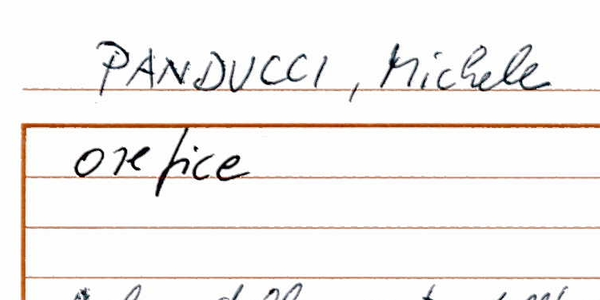 PANDUCCI, Michele
orefice